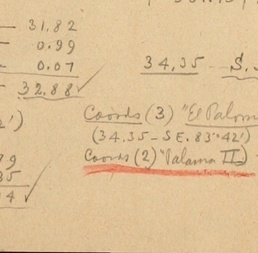 31.82
0.99
0.07
32.88
34,35 — S.
2')
Coords (3) "El Palom
(34.35 – S E. 83°42')
Coords (2) "Palama II)
9
35
4